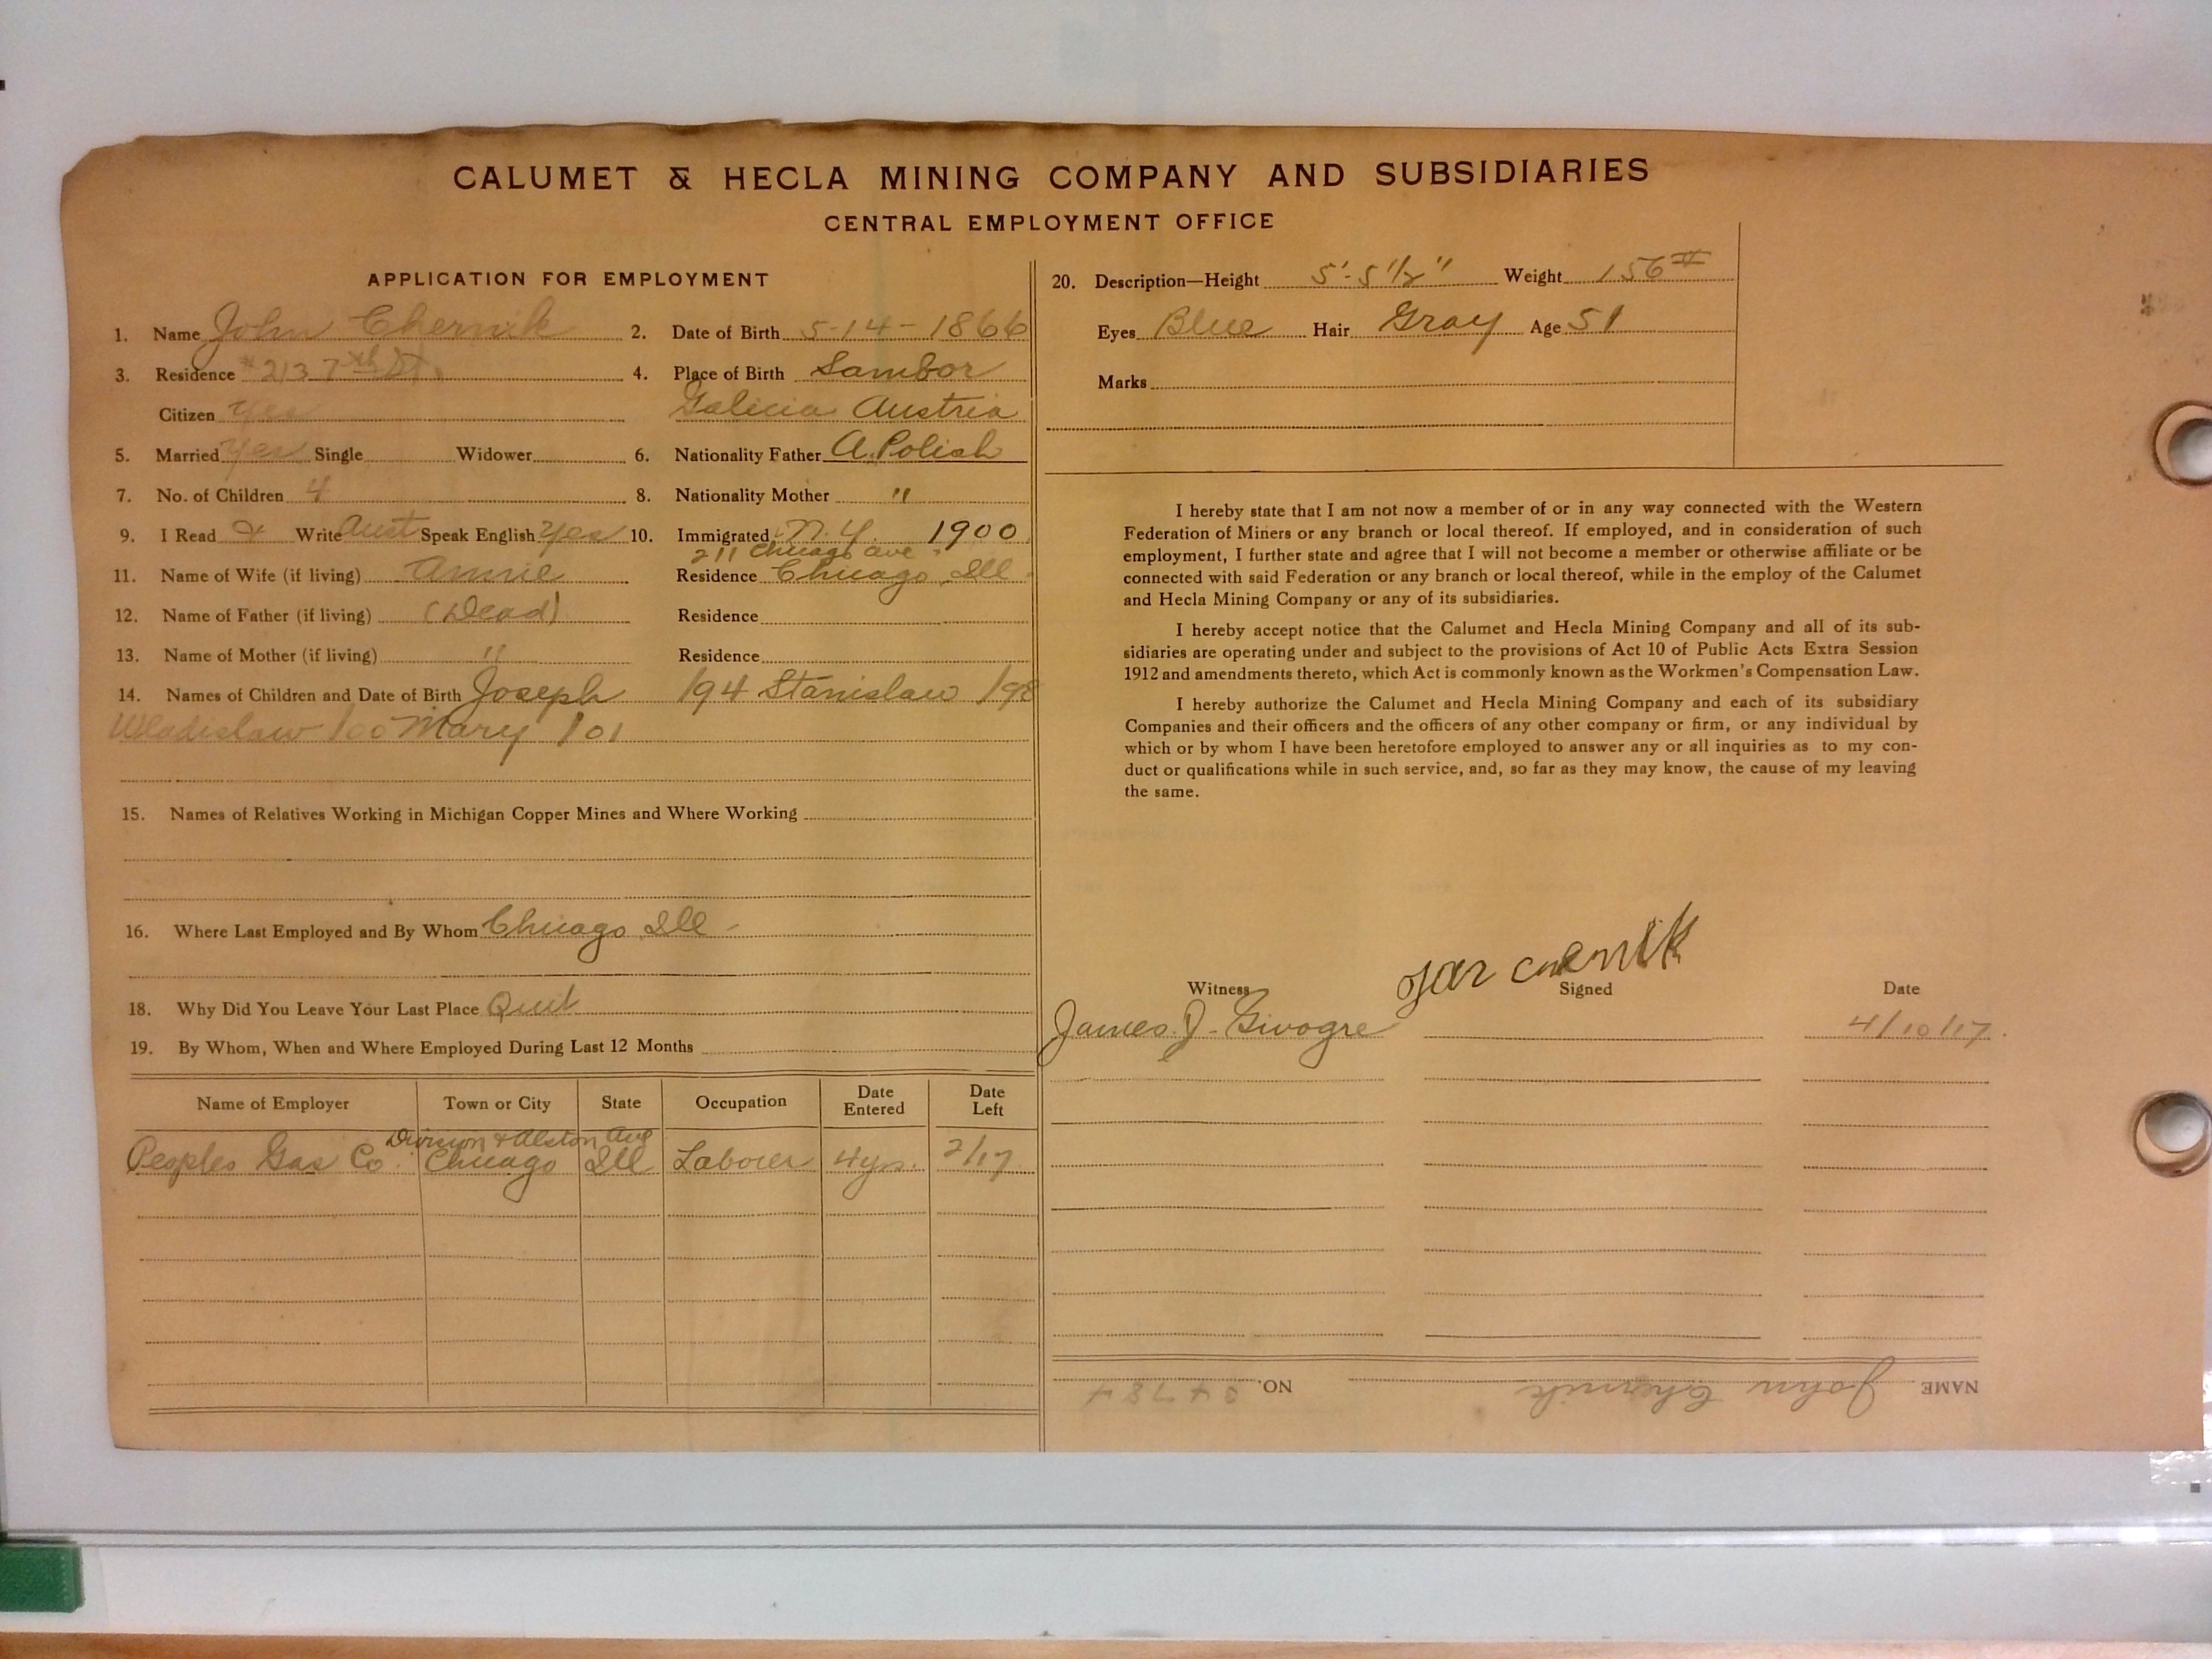 CALUMET & HECLA MINING COMPANY AND SUBSIDIARIES
CENTRAL EMPLOYMENT OFFICE
APPLICATION FOR EMPLOYMENT
1. Name John Chernik 2. Date of Birth 5-14-1866
3. Residence #213 7th St. 4. Place of Birth Sambor
Citizen yes Galicia Austria
5. Married yes Single Widower 6. Nationality Father A. Polish
7. No. of Children 4 8. Nationality Mother "
9. I Read & Write Aust Speak English yes 10. Immigrated N.Y. 1900
211 Chicago ave.
11. Name of Wife (if living) Annie Residence Chicago Ill.
12. Name of Father (if living) (Dead) Residence
13. Name of Mother (if living) " Residence
14. Names of Children and Date of Birth Joseph 194 Stanislaw 198
Wladislaw 100 Mary 101
15. Names of Relatives Working in Michigan Copper Mines and Where Working
16. Where Last Employed and By Whom Chicago Ill -
18. Why Did You Leave Your Last Place Quit
19. By Whom, When and Where Employed During Last 12 Months
Name of Employer Town or City State Occupation Date Entered Date Left
Division & Alston Ave
Peoples Gas Co. Chicago Ill Laborer 4 yrs. 2/17
20. Description—Height 5'-5 1/2" Weight 156#
Eyes Blue Hair Gray Age 51
Marks
I hereby state that I am not now a member of or in any way connected with the Western
Federation of Miners or any branch or local thereof. If employed, and in consideration of such
employment, I further state and agree that I will not become a member or otherwise affiliate or be
connected with said Federation or any branch or local thereof, while in the employ of the Calumet
and Hecla Mining Company or any of its subsidiaries.
I hereby accept notice that the Calumet and Hecla Mining Company and all of its sub-
sidiaries are operating under and subject to the provisions of Act 10 of Public Acts Extra Session
1912 and amendments thereto, which Act is commonly known as the Workmen's Compensation Law.
I hereby authorize the Calumet and Hecla Mining Company and each of its subsidiary
Companies and their officers and the officers of any other company or firm, or any individual by
which or by whom I have been heretofore employed to answer any or all inquiries as to my con-
duct or qualifications while in such service, and, so far as they may know, the cause of my leaving
the same.
Witness Signed Date
James J. Givogre 4/10/17.
NAME John Chernik NO. 34784